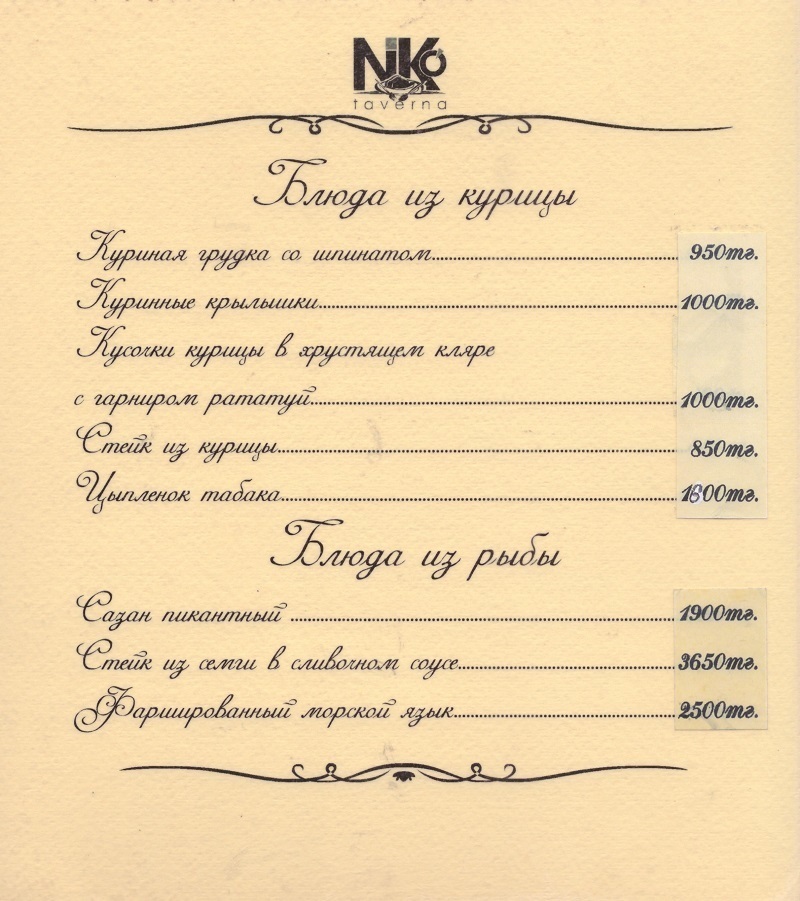 NiKo
taverna
Блюда из курицы
Куриная грудка со шпинатом 950тг.
Куринные крылышки 1000тг.
Кусочки курицы в хрустящем кляре
с гарниром рататуй 1000тг.
Стейк из курицы 850тг.
Цыпленок табака
Блюда из рыбы
Сазан пикантный 1900тг.
Стейк из семги в сливочном соусе 3650тг.
Фаршированный морской язык 2500тг.